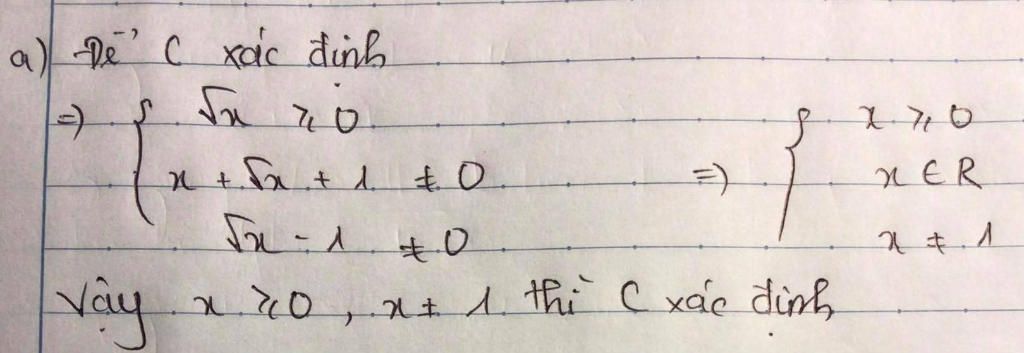 a) Để C xác định
=> { √x ≥ 0
x + √x + 1 ≠ 0 => { x ≥ 0
x ∈ R
√x - 1 ≠ 0
x ≠ 1
Vậy x ≥ 0, x ≠ 1 thì C xác định